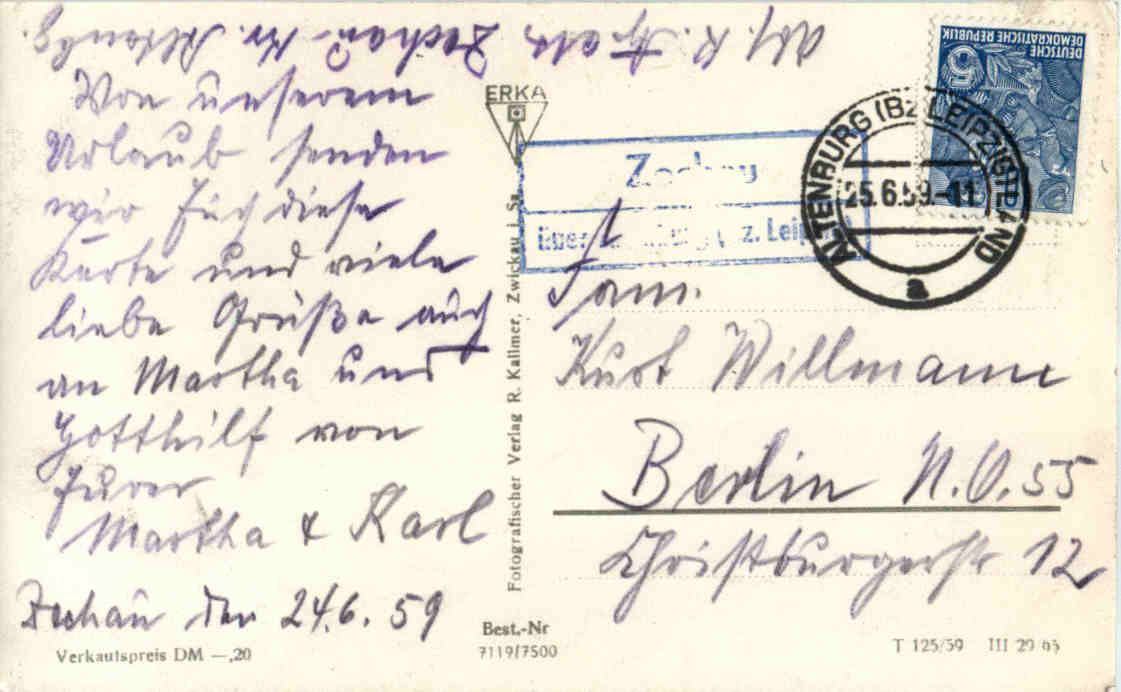 Abs. K. Zechau Kr. Altenbg.
Von unserem
Urlaub senden
wir Euch diese
Karte und viele
liebe Grüße auch
an Martha und
Gotthilf von
Eurer
Martha & Karl
Zechau den 24.6.59
Verkaufspreis DM —,20
ERKA
Fotografischer Verlag R. Kallmer, Zwickau i. Sa.
Best.-Nr
7119/7500
Zechau
über Altenburg (Bz. Leipzig)
ALTENBURG (BZ LEIPZIG) LAND
25.6.59.-11
a
DEUTSCHE
DEMOKRATISCHE REPUBLIK
5
Fam.
Kurt Willmann
Berlin N.O.55
Christburgerstr 12
T 125/59 III 29 65